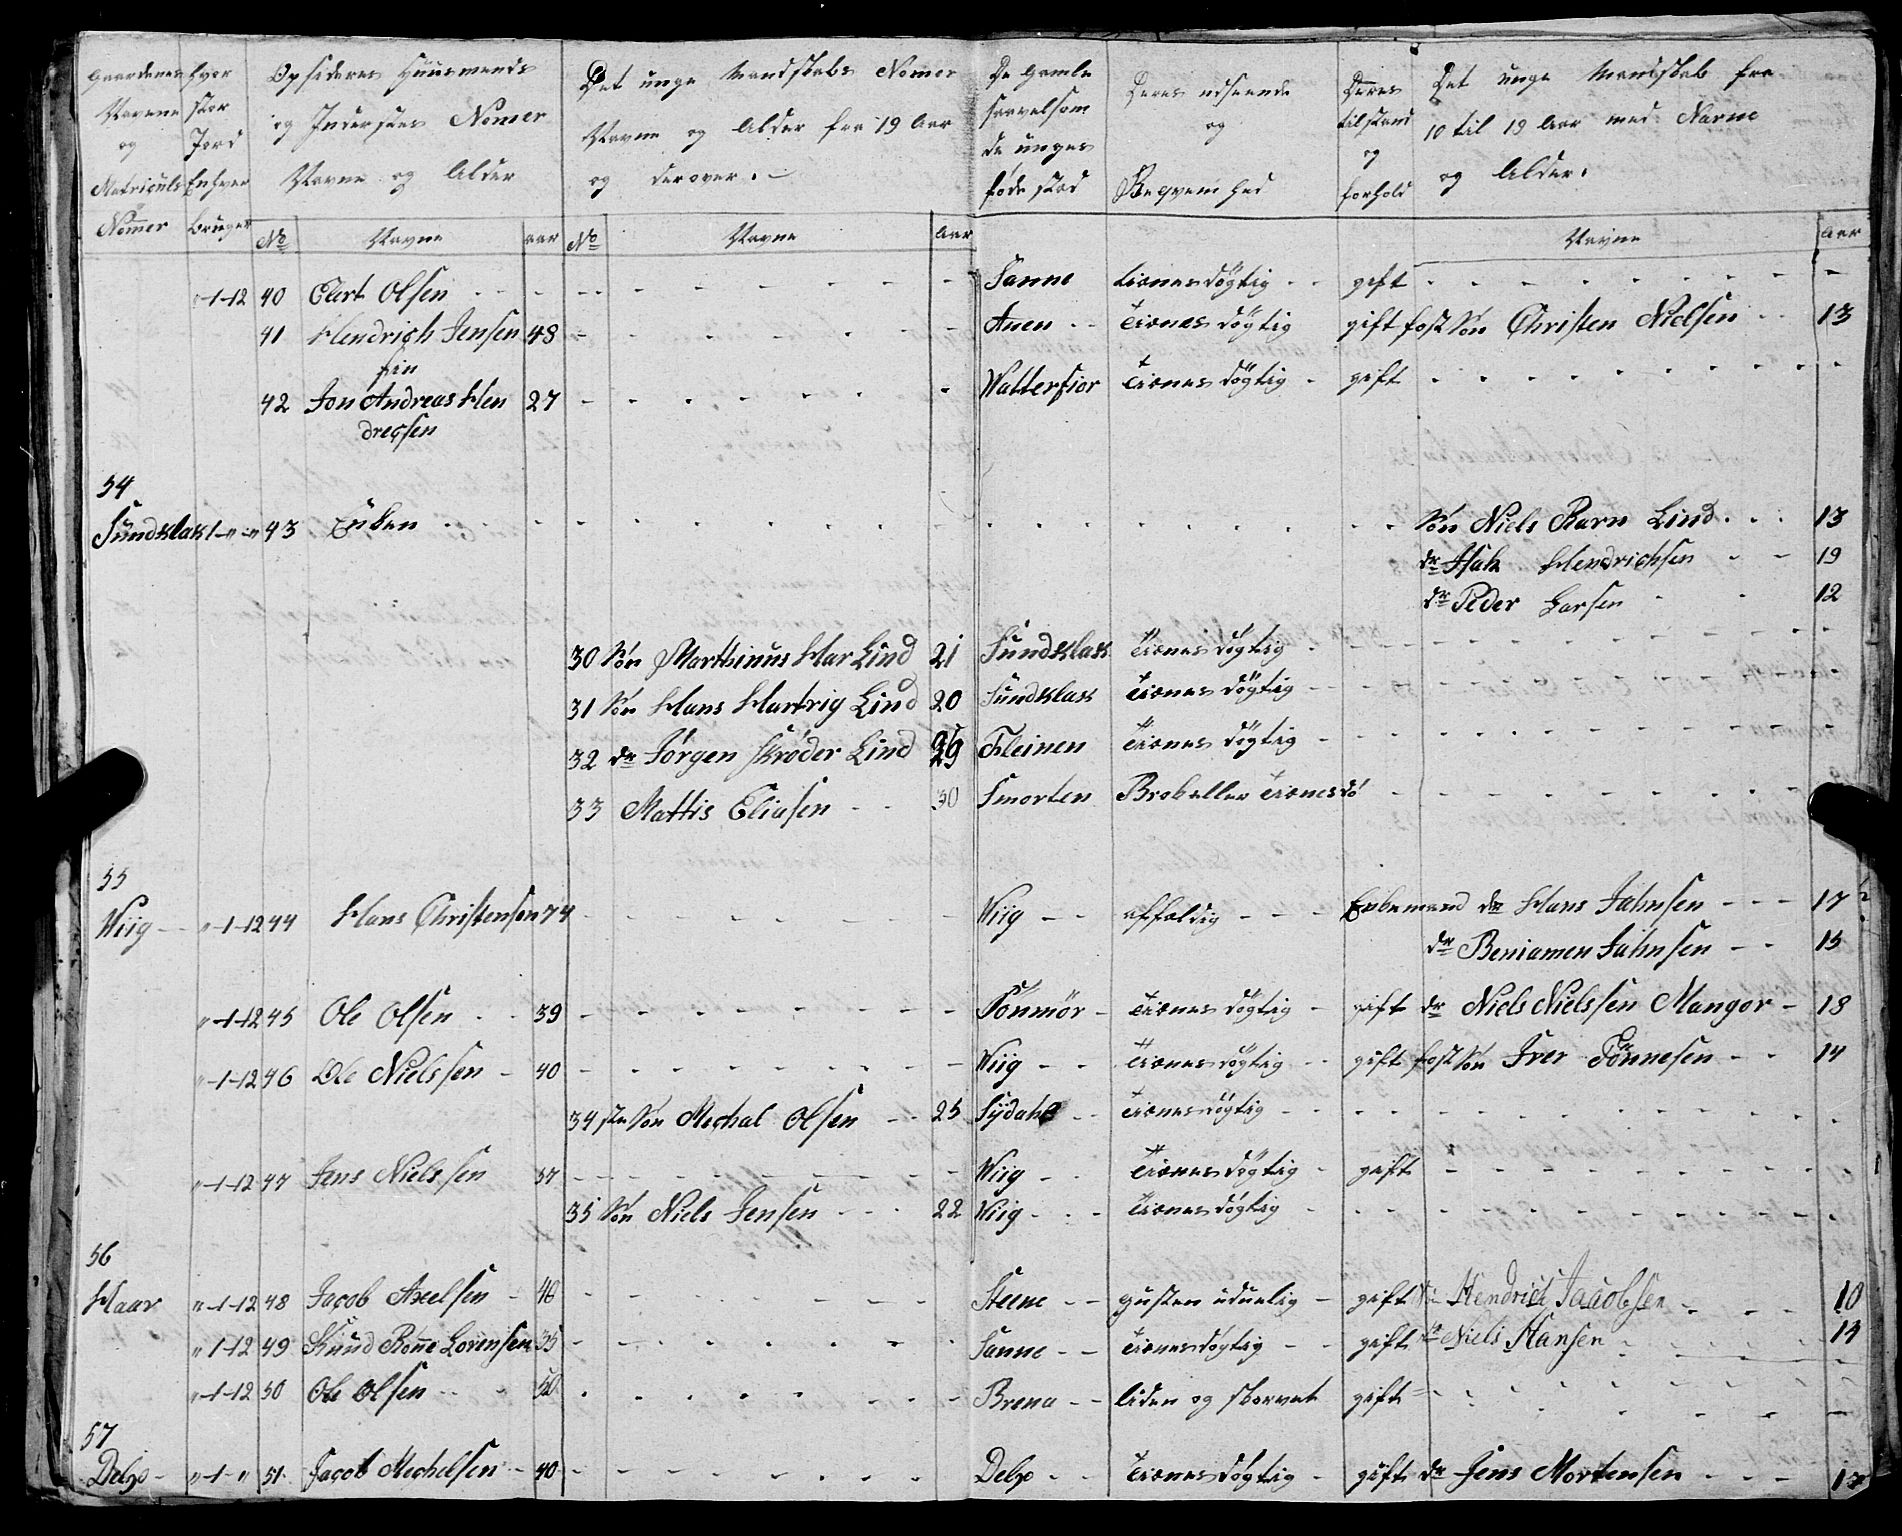 Gaardenes Navne og Matriculs Nomer
hvor stor Jord Enhver bruger
Opsideres Huusmends og Jndersters Nomer Navne og Alder
Det unge Mandskabs Nomer Navne og Alder fra 19 Aar og derover.
De Gamle saavelsom de unges føde stad
Deres udseende og Beqvemhed
Deres tilstand og forhold
Det unge Mandskab fra 10 til 19 Aar med Navne og Alder.
No Navne aar No Navne Aar Navne Aar
"-1-12 40 Elert Olsen Sanne tienesdøgtig gift
41 Hendrich Jensen 48 Anen tienes døgtig gift fost Søn Christen Nielsen 13
fin
42 Jon Andreas Hen 27 Watterfior tienes døgtig gift
dreçsen
54
Sundklak 1-"-" 43 Enken Søn Niels Rarn Lind 13
dn Isak Hendrichsen 19
dn Peder Larsen 12
30 Søn Marthinus Har Lind 21 Sundklak tienes døgtig
31 Søn Hans Hartvig Lind 20 Sundklak tienes døgtig
32 dn Jørgen Skrøder Lind 29 Fleinen tienes døgtig
33 Mattis Eliasen 30 Smorten tienesdø
55
Wiig "-1-12 44 Hans Christensen 74 Wiig affældig Enkemand dn Hans Jahnsen 17
dn Beniamen Jahnsen 15
"-1-12 45 Ole Olsen 39 Sønmör tienes døgtig gift dn Niels Nielssen Mangor 18
"-1-12 46 Ole Nielssen 40 Wiig tienes døgtig gift fost Søn Iver Tönnesen 14
34 ste Søn Mechal Olsen 25 tienesdøgtig
"-1-12 47 Jens Nielssen 57 Wiig tienes døgtig gift
35 Søn Niels Jensen 22 Wiig tienes døgtig
56
Haar "-1-12 48 Jacob Axelsen 40 Steene gusten uduelig gift Hendrich Jacobsen 10
"1-12 49 Knud Rønne Lorensen 35 Sanne tienesdøgtig gift Niels Hansen 14
"-1-12 50 Ole Olsen 50 Brena liden og skarvet gift
57
Delp "-1-" 51 Jacob Mechelsen 40 Delp tienes døgtig gift dn Jens Mortensen 17